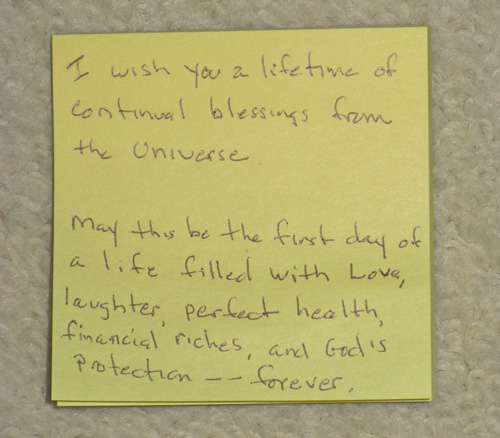 I wish you a lifetime of
continual blessings from
the Universe.
May this be the first day of
a life filled with Love,
laughter, perfect health,
financial riches, and God's
Protection -- forever.